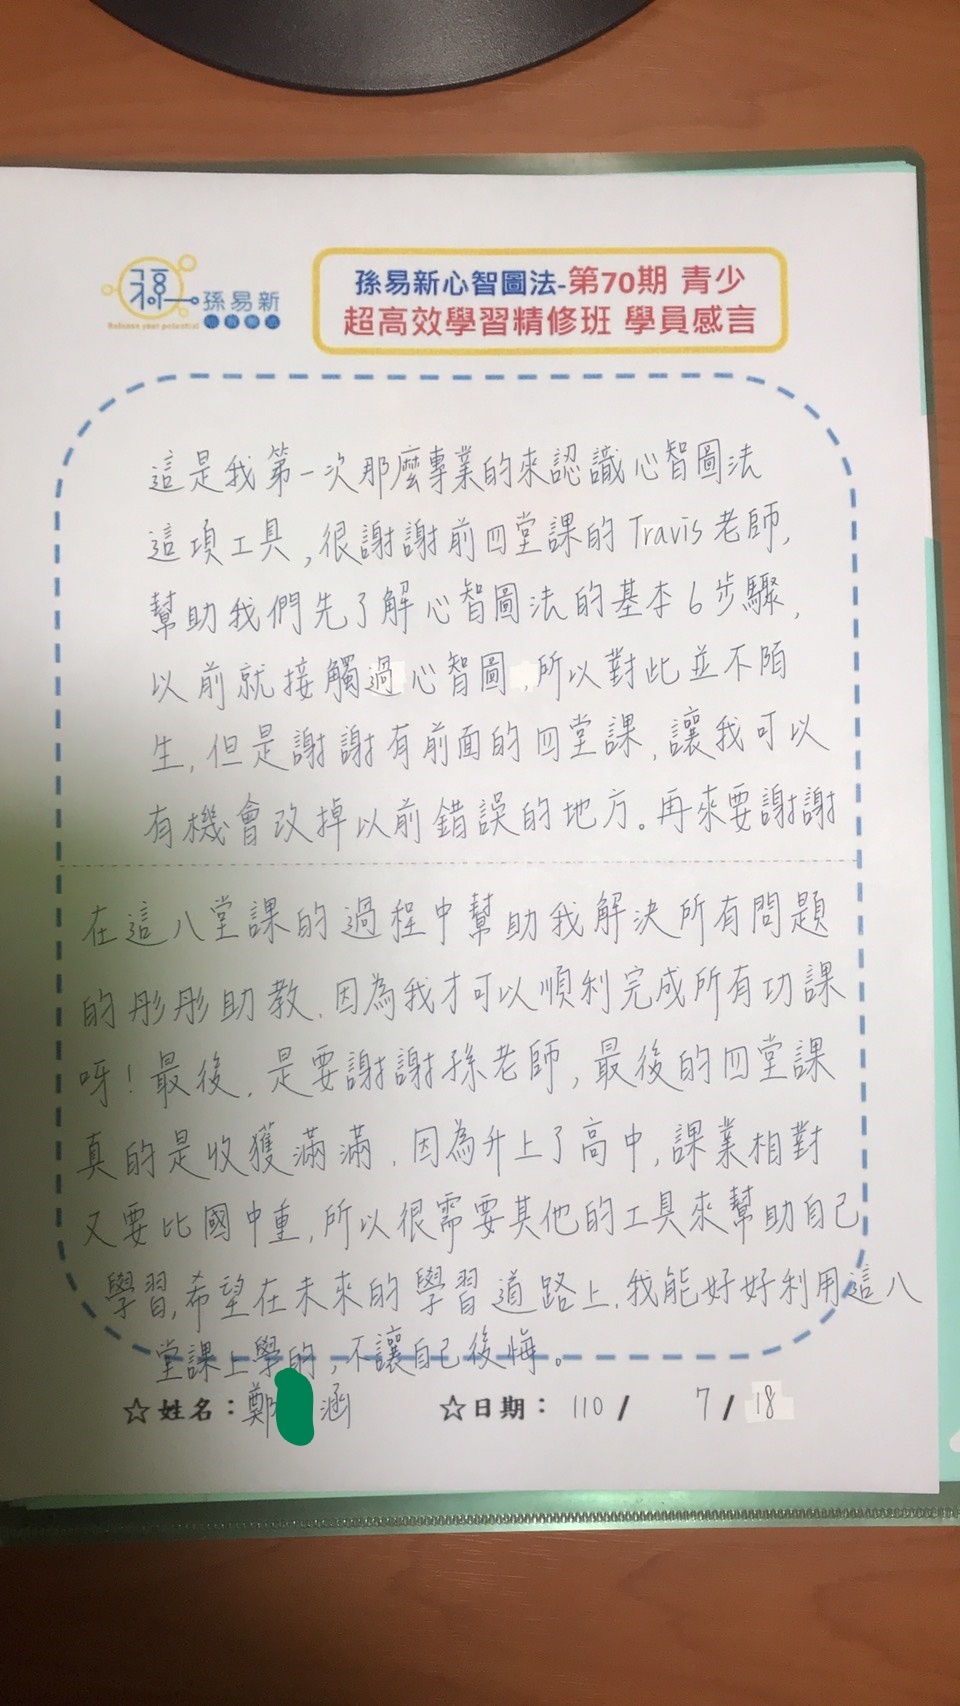 孫易新
Release your potential
孫易新心智圖法-第70期 青少
超高效學習精修班 學員感言
這是我第一次那麼專業的來認識心智圖法
這項工具,很謝謝前四堂課的Travis老師,
幫助我們先了解心智圖法的基本6步驟,
以前就接觸過心智圖,所以對此並不陌
生,但是謝謝有前面的四堂課,讓我可以
有機會改掉以前錯誤的地方。再來要謝謝
在這八堂課的過程中幫助我解決所有問題
的彤彤助教,因為我才可以順利完成所有功課
呀!最後,是要謝謝孫老師,最後的四堂課
真的是收獲滿滿,因為升上了高中,課業相對
又要比國中重,所以很需要其他的工具來幫助自己
學習,希望在未來的學習道路上,我能好好利用這八
堂課上學的,不讓自己後悔。
☆姓名:鄭 涵 ☆日期: 110 / 7 / 18